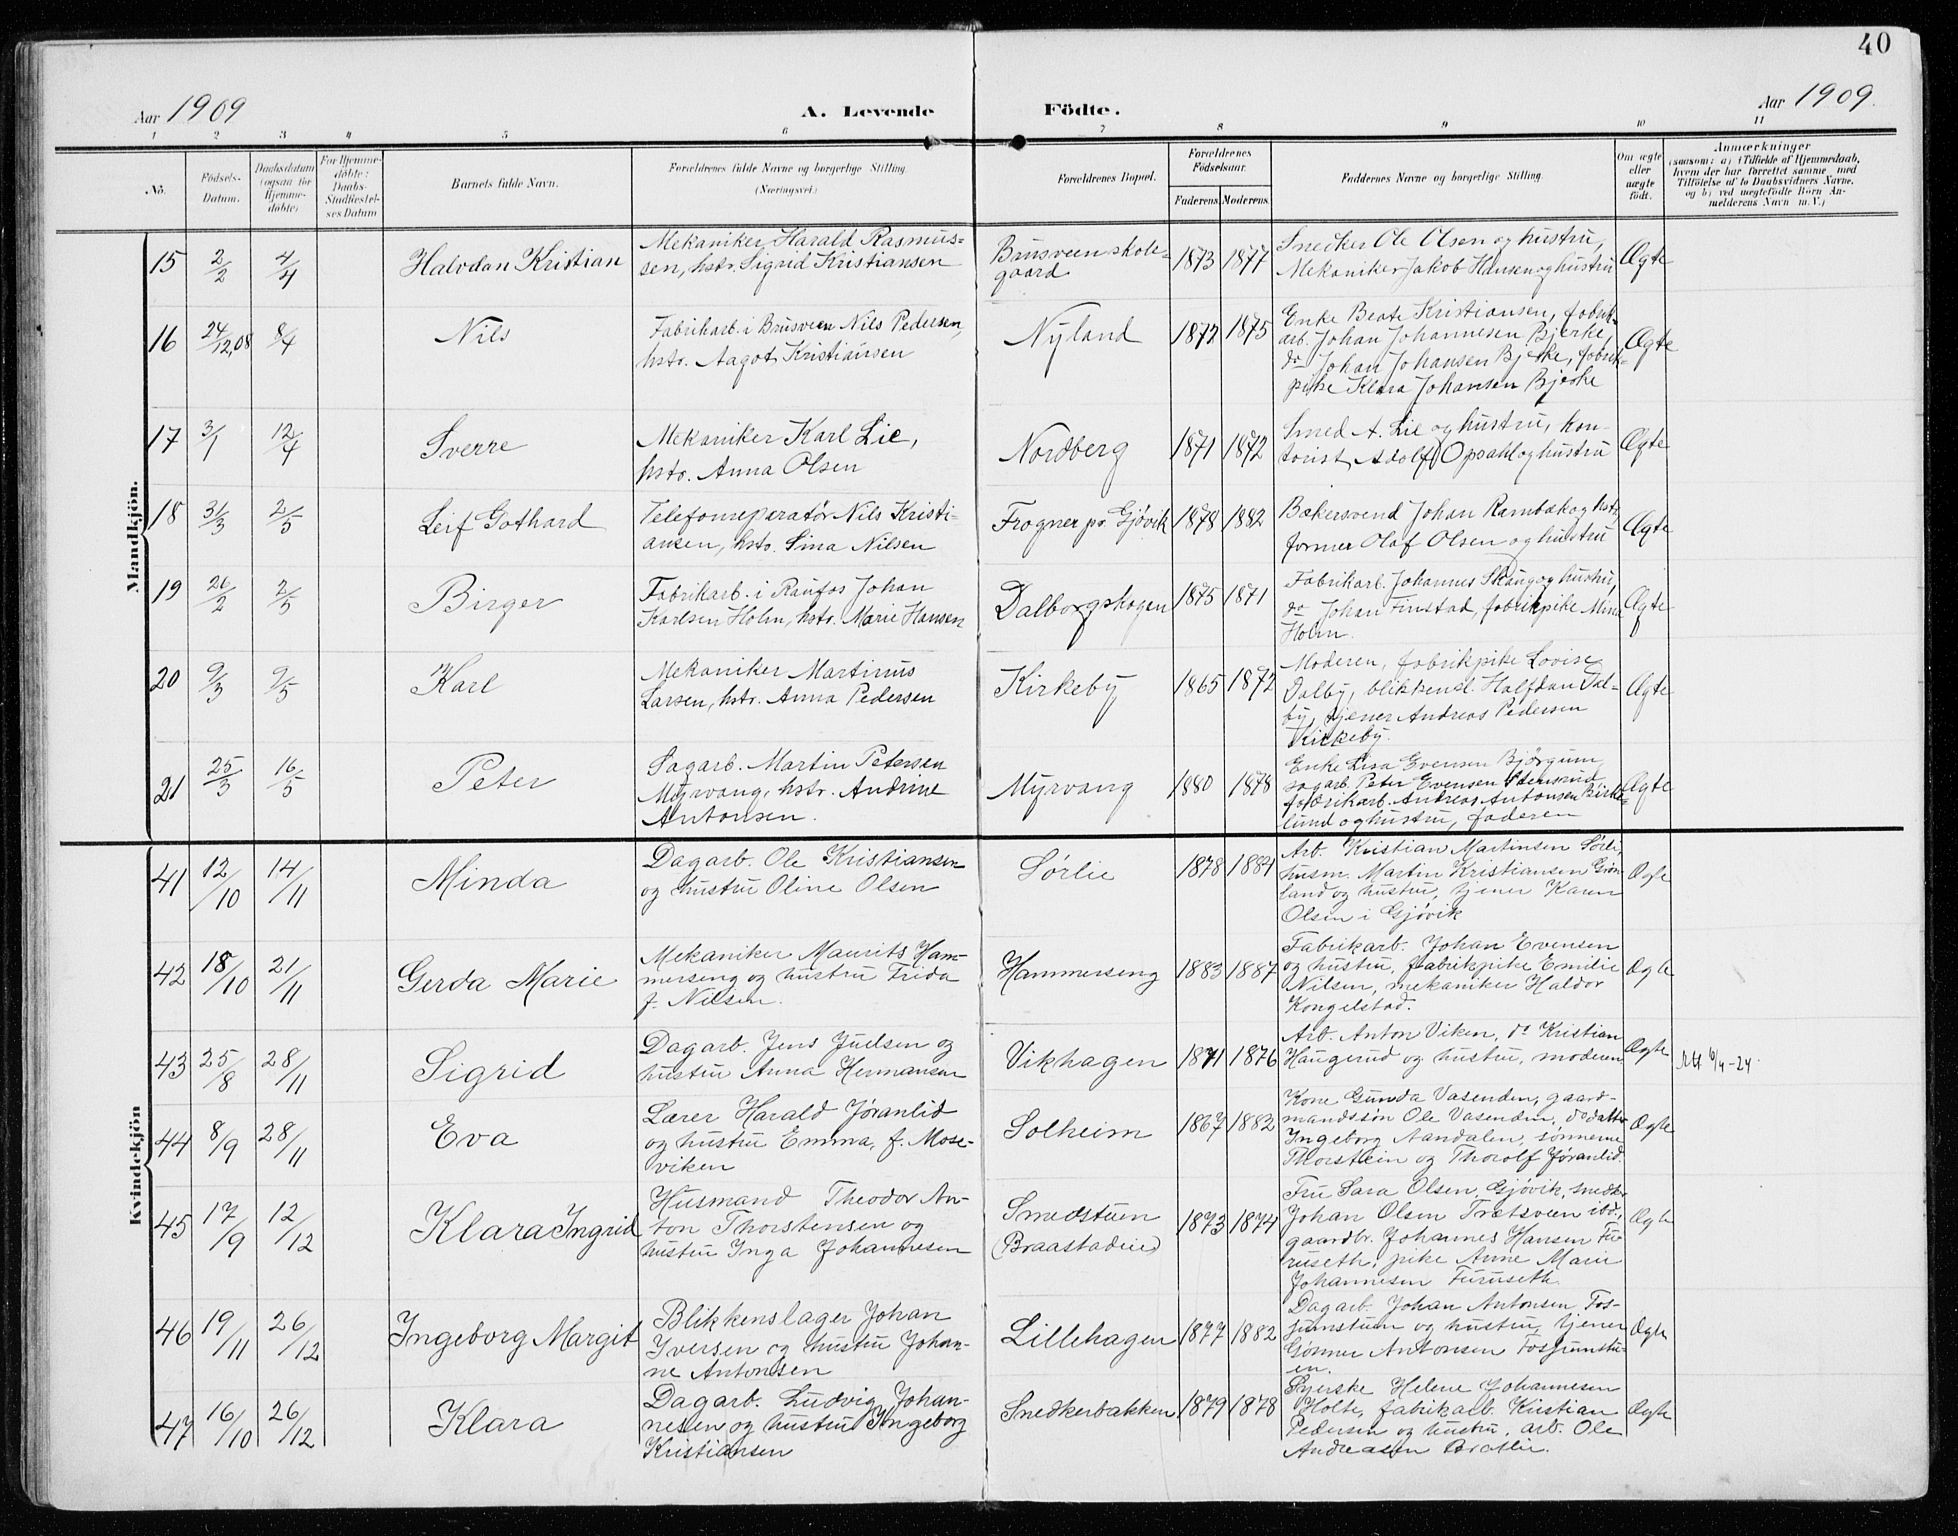 40
Aar 1909
A. Levende Födte.
Aar 1909.
1 2 3 4 5 6 7 8 9 10 11
No.
Födsels-
Datum.
Daabsdatum
(ogsaa for
Hjemme-
döbte)
For Hjemme-
döbte:
Daabs-
Stadfæstel-
ses Datum
Barnets fulde Navn.
Forældrenes fulde Navne og borgerlige Stilling.
(Næringsvei.)
Forældrenes Bopæl.
Forældrenes
Födselsaar.
Faderens. Moderens.
Faddernes Navne og borgerlige Stilling.
Om ægte
eller
uægte
födt.
Anmærkninger
(saasom: a) i Tilfælde af Hjemmedaab,
hvem der har forrettet samme med
Tilföielse af to Daabsvidners Navne,
og b) ved uægtefödte Börn An-
melderens Navn m. V.)
Mandkjön.
15 2/2 4/4 Halvdan Kristian
Mekaniker Harald Rasmus-
sen, hstr. Sigrid Kristiansen
Brusveen skole-
gaard
1873 1877
Snedker Ole Olsen og hustru,
Mekaniker Jakob Hansen og hustru
Ægte
16 24/12,08 8/4 Nils
Fabrikarb. i Brusveen Nils Pedersen,
hstr. Aagot Kristiansen
Nyland
1872 1875
Enke Beate Kristiansen, fabrik-
arb. Johan Johannesen Bjerke,
do Johan Johansen Bjerke, fabrik-
pike Klara Johansen Bjerke
Ægte
17 3/1 12/4 Sverre
Mekaniker Karl Lie,
hstr. Anna Olsen
Nordberg
1871 1872
Smed A. Lie og hustru, kon-
torist Adolf Opsahl og hustru
Ægte
18 31/3 2/5 Leif Gothard
Telefonreparatør Nils Kristi-
ansen, hstr. Sina Nilsen
Frogner pr. Gjøvik
1878 1882
Bakersvend Johan Rambæk og hstr,
former Olaf Olsen og hustru
Ægte
19 26/2 2/5 Birger
Fabrikarb. i Raufos Johan
Karlsen Holm, hstr. Marie Hansen
Dalborgshagen
1875 1871
Fabrikarb. Johannes Skaug og hustru,
do Johan Finstad, fabrikpike Mina
Holm.
Ægte
20 9/3 9/5 Karl
Mekaniker Martinus
Larsen, hstr. Anna Pedersen
Kirkeby
1865 1872
Moderen, fabrikpike Lovise
Dalby, blikkensl. Halfdan Dal-
by, tjener Andreas Pedersen
Kirkeby.
Ægte
21 25/3 16/5 Peter
Sagarb. Martin Petersen
Myrvang, hstr. Andrine
Antonsen.
Myrvang
1880 1878
Enke Lisa Evensen Bjørgum,
sagarb. Peter Evensen Stensrud,
fabrikarb. Andreas Antonsen Birke-
lund og hustru, faderen
Ægte
Kvindekjön
41 12/10 14/11 Minda
Dagarb. Ole Kristiansen
og hustru Oline Olsen
Sørlie
1878 1884
Arb. Kristian Martinsen Sørli,
husm. Martin Kristiansen Grøn-
land og hustru, tjener Karen
Olsen i Gjøvik
Ægte
42 18/10 21/11 Gerda Marie
Mekaniker Maurits Ham-
merseng og hustru Frida
f. Nilsen.
Hammerseng
1883 1887
Fabrikarb. Johan Evensen
og hustru, fabrikpike Emilie
Nilsen, mekaniker Haldor
Kongelstad.
Ægte
43 25/8 28/11 Sigrid
Dagarb. Jens Juelsen og
hustru Anna Hermansen
Vikhagen
1871 1876
Arb. Anton Viken, do Kristian
Haugerud og hustru, moderen
Ægte
Att 6/4-24.
44 8/9 28/11 Eva
Lærer Harald Jøranlid
og hustru Emma, f. Mose-
viken
Solheim
1867 1882
Kone Gunda Vasenden, gaard-
mandssøn Ole Vasenden, do datter
Ingeborg Aandalen, sønnerne
Thorstein og Thorolf Jøranlid.
Ægte
45 17/9 12/12 Klara Ingrid
Husmand Theodor An-
ton Thorstensen og
hustru Inga Johannesen
Smedstuen
(Braastadeie)
1873 1874
Fru Sara Olsen, Gjøvik, snedk.
Johan Olsen Trætsveen ibd.,
gaardbr. Johannes Hansen Fu-
ruseth, pike Anne Marie
Johannesen Furuseth.
Ægte
46 19/11 26/12 Ingeborg Margit
Blikkenslager Johan
Iversen og hustru Johan-
ne Antonsen
Lillehagen
1877 1882
Dagarb. Johan Antonsen Fos-
sumstuen og hustru, tjener
Gønner Antonsen Fossumstu-
en.
Ægte
47 16/10 26/12 Klara
Dagarb. Ludvig Johan-
nesen og hustru Ingeborg
Kristiansen
Snedkerbakken
1879 1878
Syerske Helene Johannesen
Holte, fabrikarb. Kristian
Pedersen og hustru, arb. Ole
Andreasen Bratlie.
Ægte